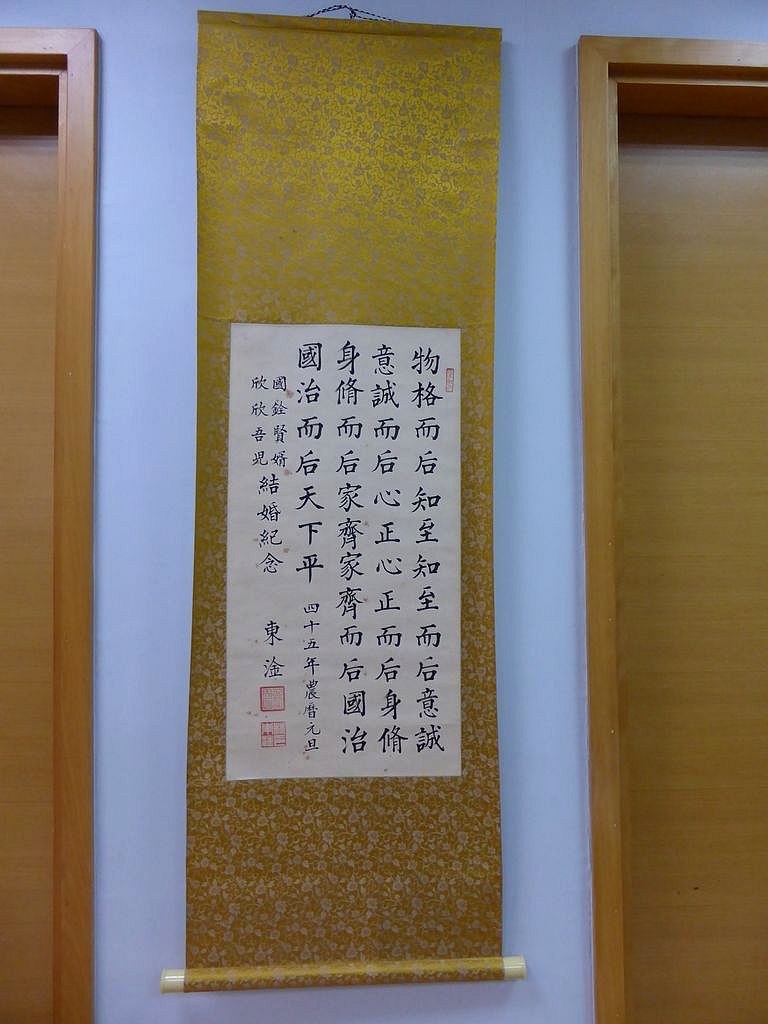 物格而后知至知至而后意誠
意誠而后心正心正而后身脩
身脩而后家齊家齊而后國治
國治而后天下平
四十五年農曆元旦
國銓賢婿
欣欣吾兒
結婚紀念
東淦